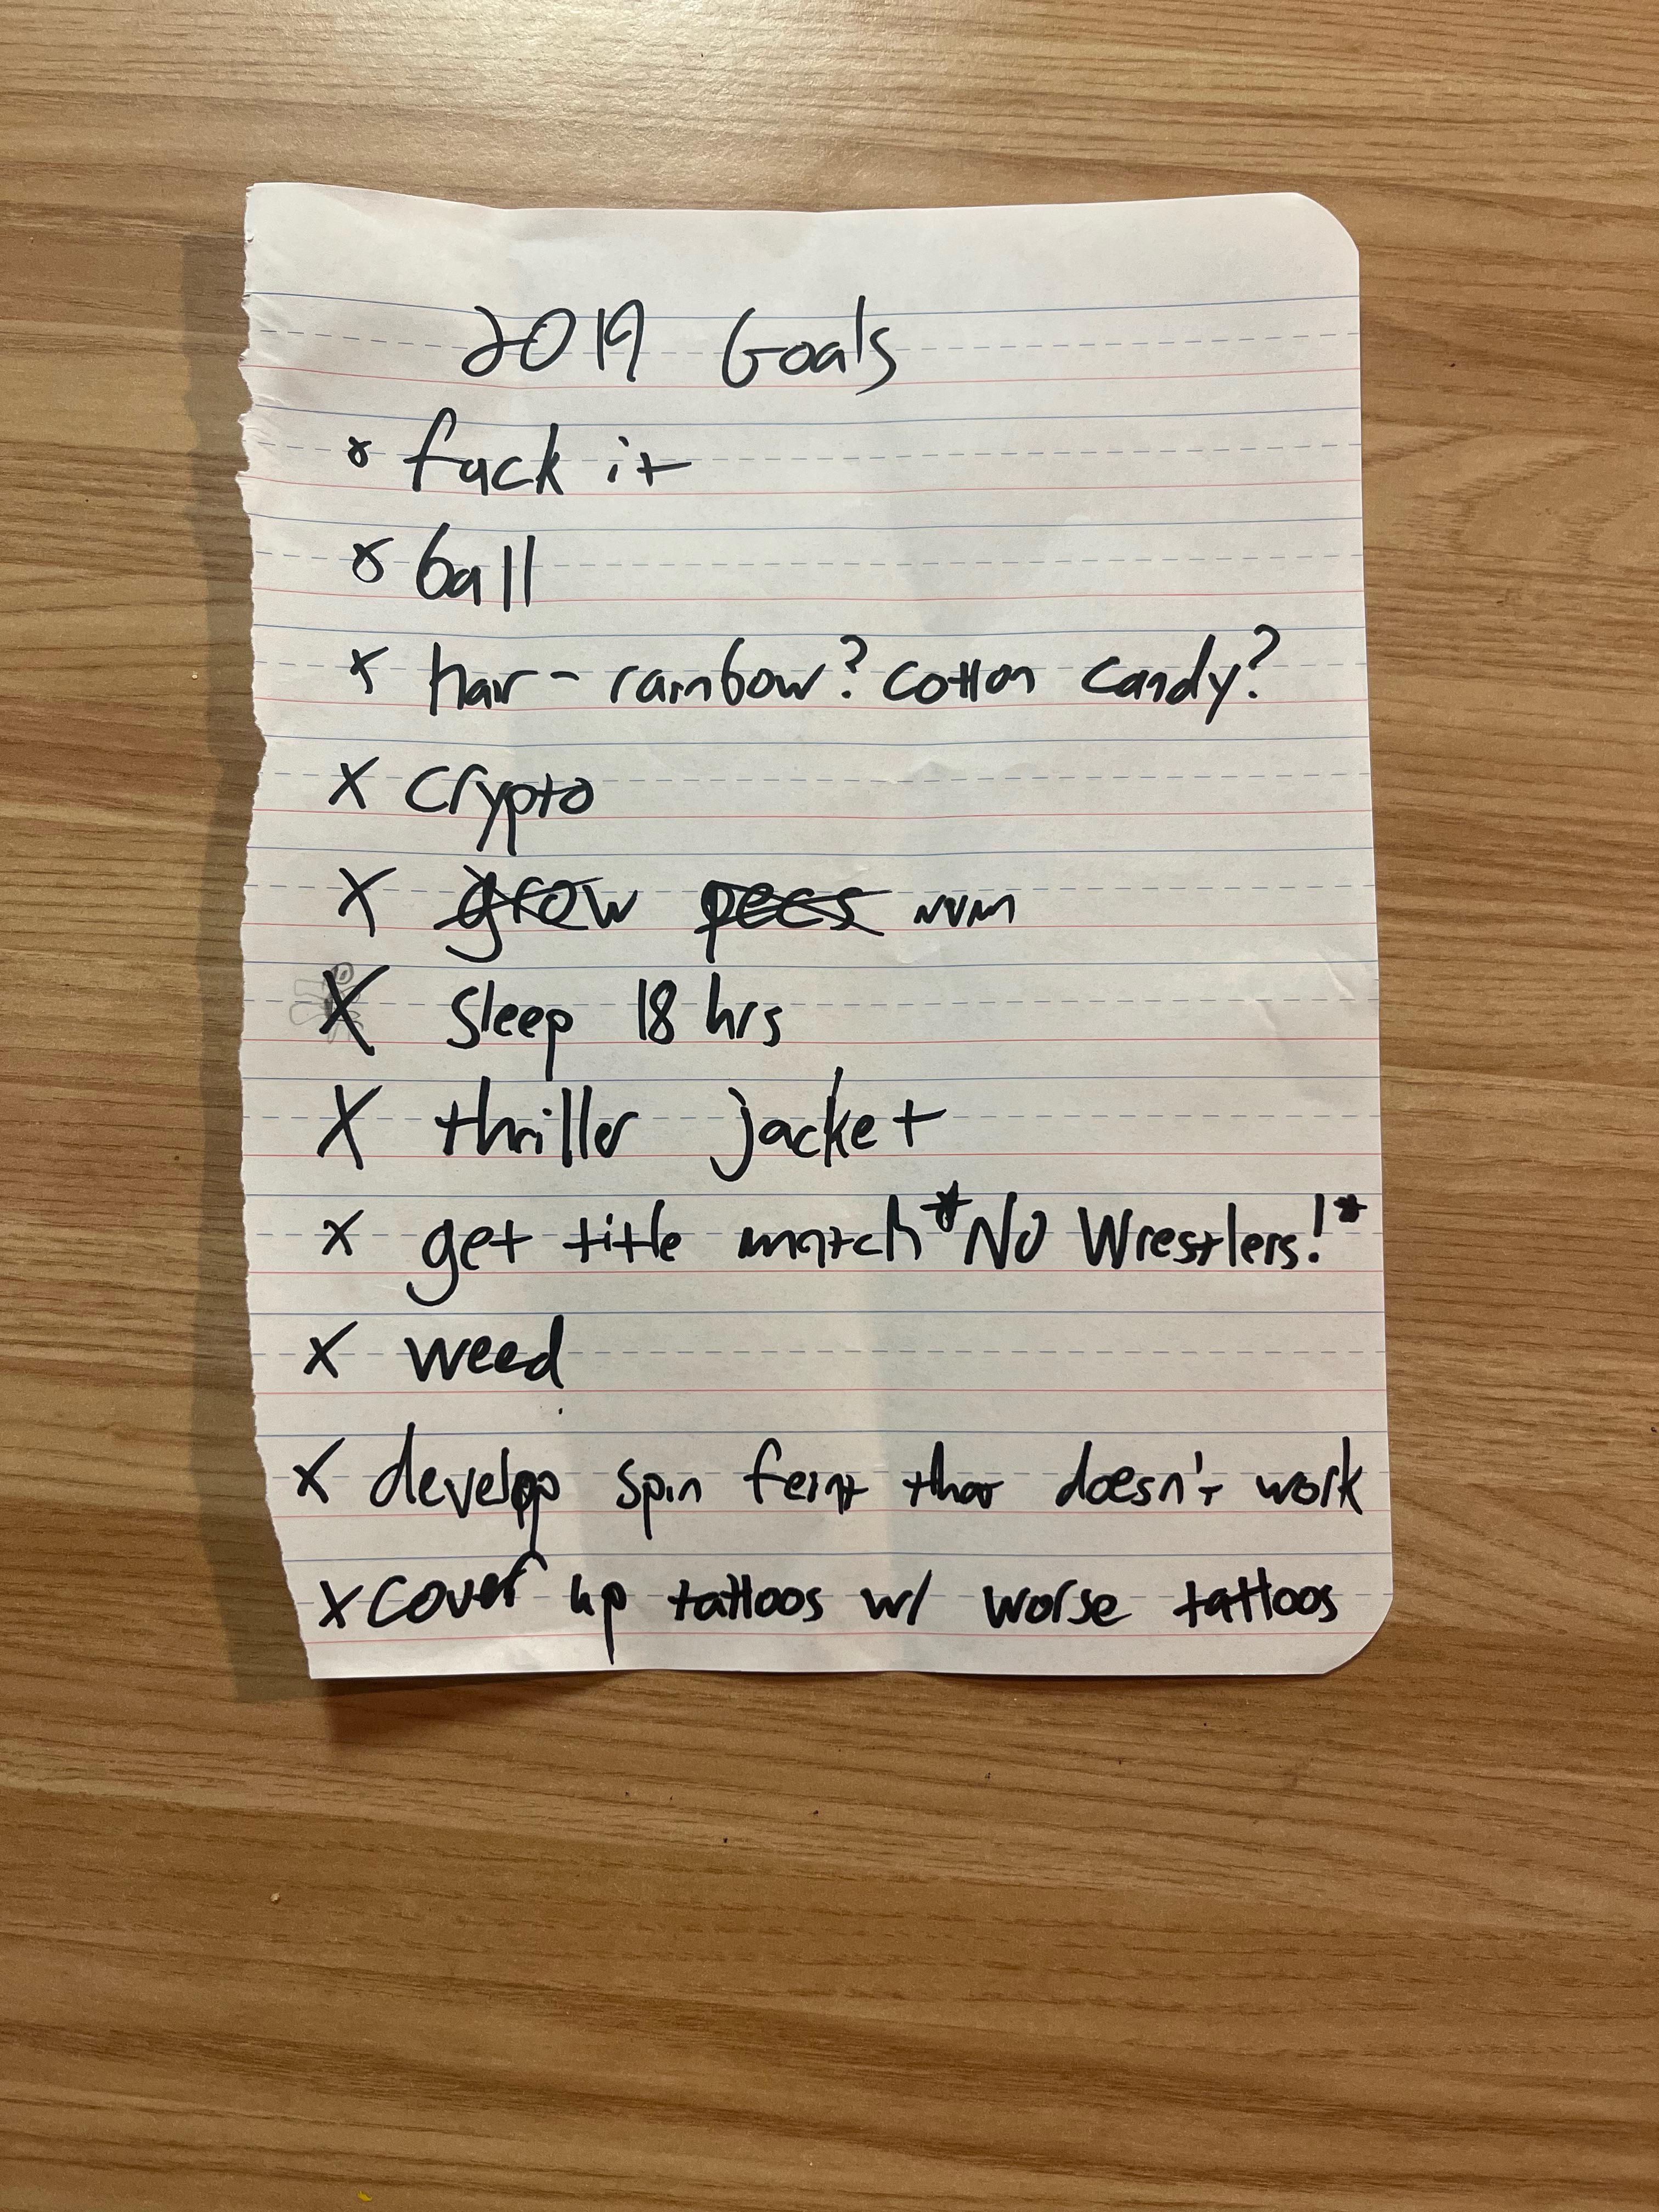 2019 Goals
fuck it
ball
x hair - rainbow? cotton candy?
x crypto
x grow pecs nvm
x Sleep 18 hrs
x thriller jacket
x get title match *No Wrestlers!*
x weed
x develop spin feint that doesn't work
x cover up tattoos w/ worse tattoos